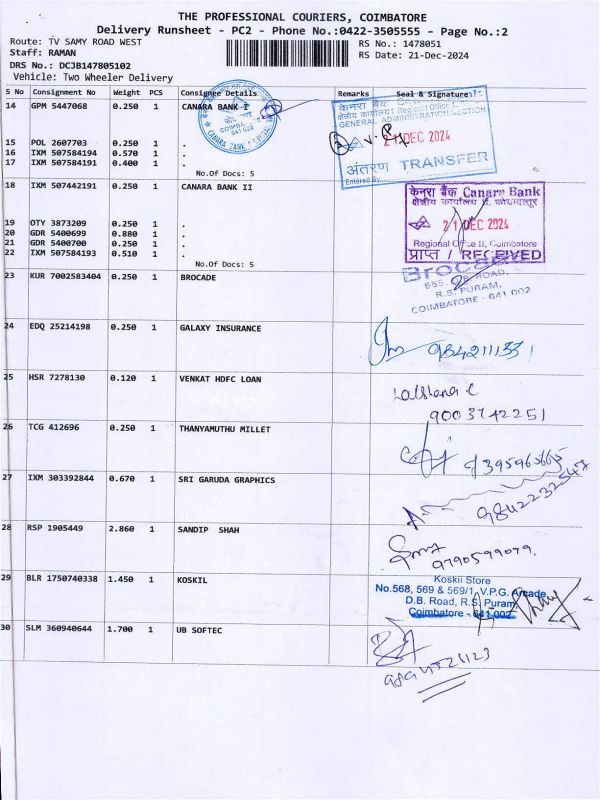 THE PROFESSIONAL COURIERS, COIMBATORE
Delivery Runsheet - PC2 - Phone No.:0422-3505555 - Page No.:2
Route: TV SAMY ROAD WEST
RS No.: 1478051
Staff: RAMAN
RS Date: 21-Dec-2024
DRS No.: DCJB147805102
Vehicle: Two Wheeler Delivery
S No Consignment No Weight PCS Consignee Details Remarks Seal & Signature
14 GPM 5447068 0.250 1 CANARA BANK I
15 POL 2607703 0.250 1 .
16 IXM 507584194 0.570 1 .
17 IXM 507584191 0.400 1 .
No.Of Docs: 5
केनरा बैंक Canara Bank
GENERAL ADMINISTRATION SECTION
21 DEC 2024
अंतरण TRANSFER
Entered By
18 IXM 507442191 0.250 1 CANARA BANK II
19 OTY 3873209 0.250 1 .
20 GDR 5400699 0.880 1 .
21 GDR 5400700 0.250 1 .
22 IXM 507584193 0.510 1 .
No.Of Docs: 5
केनरा बैंक Canara Bank
क्षेत्रीय कार्यालय II, कोयम्बत्तूर
21 DEC 2024
Regional Office II, Coimbatore
प्राप्त / RECEIVED
23 KUR 7002583404 0.250 1 BROCADE
Brocade
R.S. PURAM,
COIMBATORE - 641 002
24 EDQ 25214198 0.250 1 GALAXY INSURANCE
9842111331
25 HSR 7278130 0.120 1 VENKAT HDFC LOAN
9003742251
26 TCG 412696 0.250 1 THANYAMUTHU MILLET
27 IXM 303392844 0.670 1 SRI GARUDA GRAPHICS
9842232547
28 RSP 1905449 2.860 1 SANDIP SHAH
9790599079.
29 BLR 1750740338 1.450 1 KOSKIL
Koskii Store
No.568, 569 & 569/1, V.P.G. Arcade,
D.B. Road, R.S. Puram,
Coimbatore - 641 002
30 SLM 360940644 1.700 1 UB SOFTEC